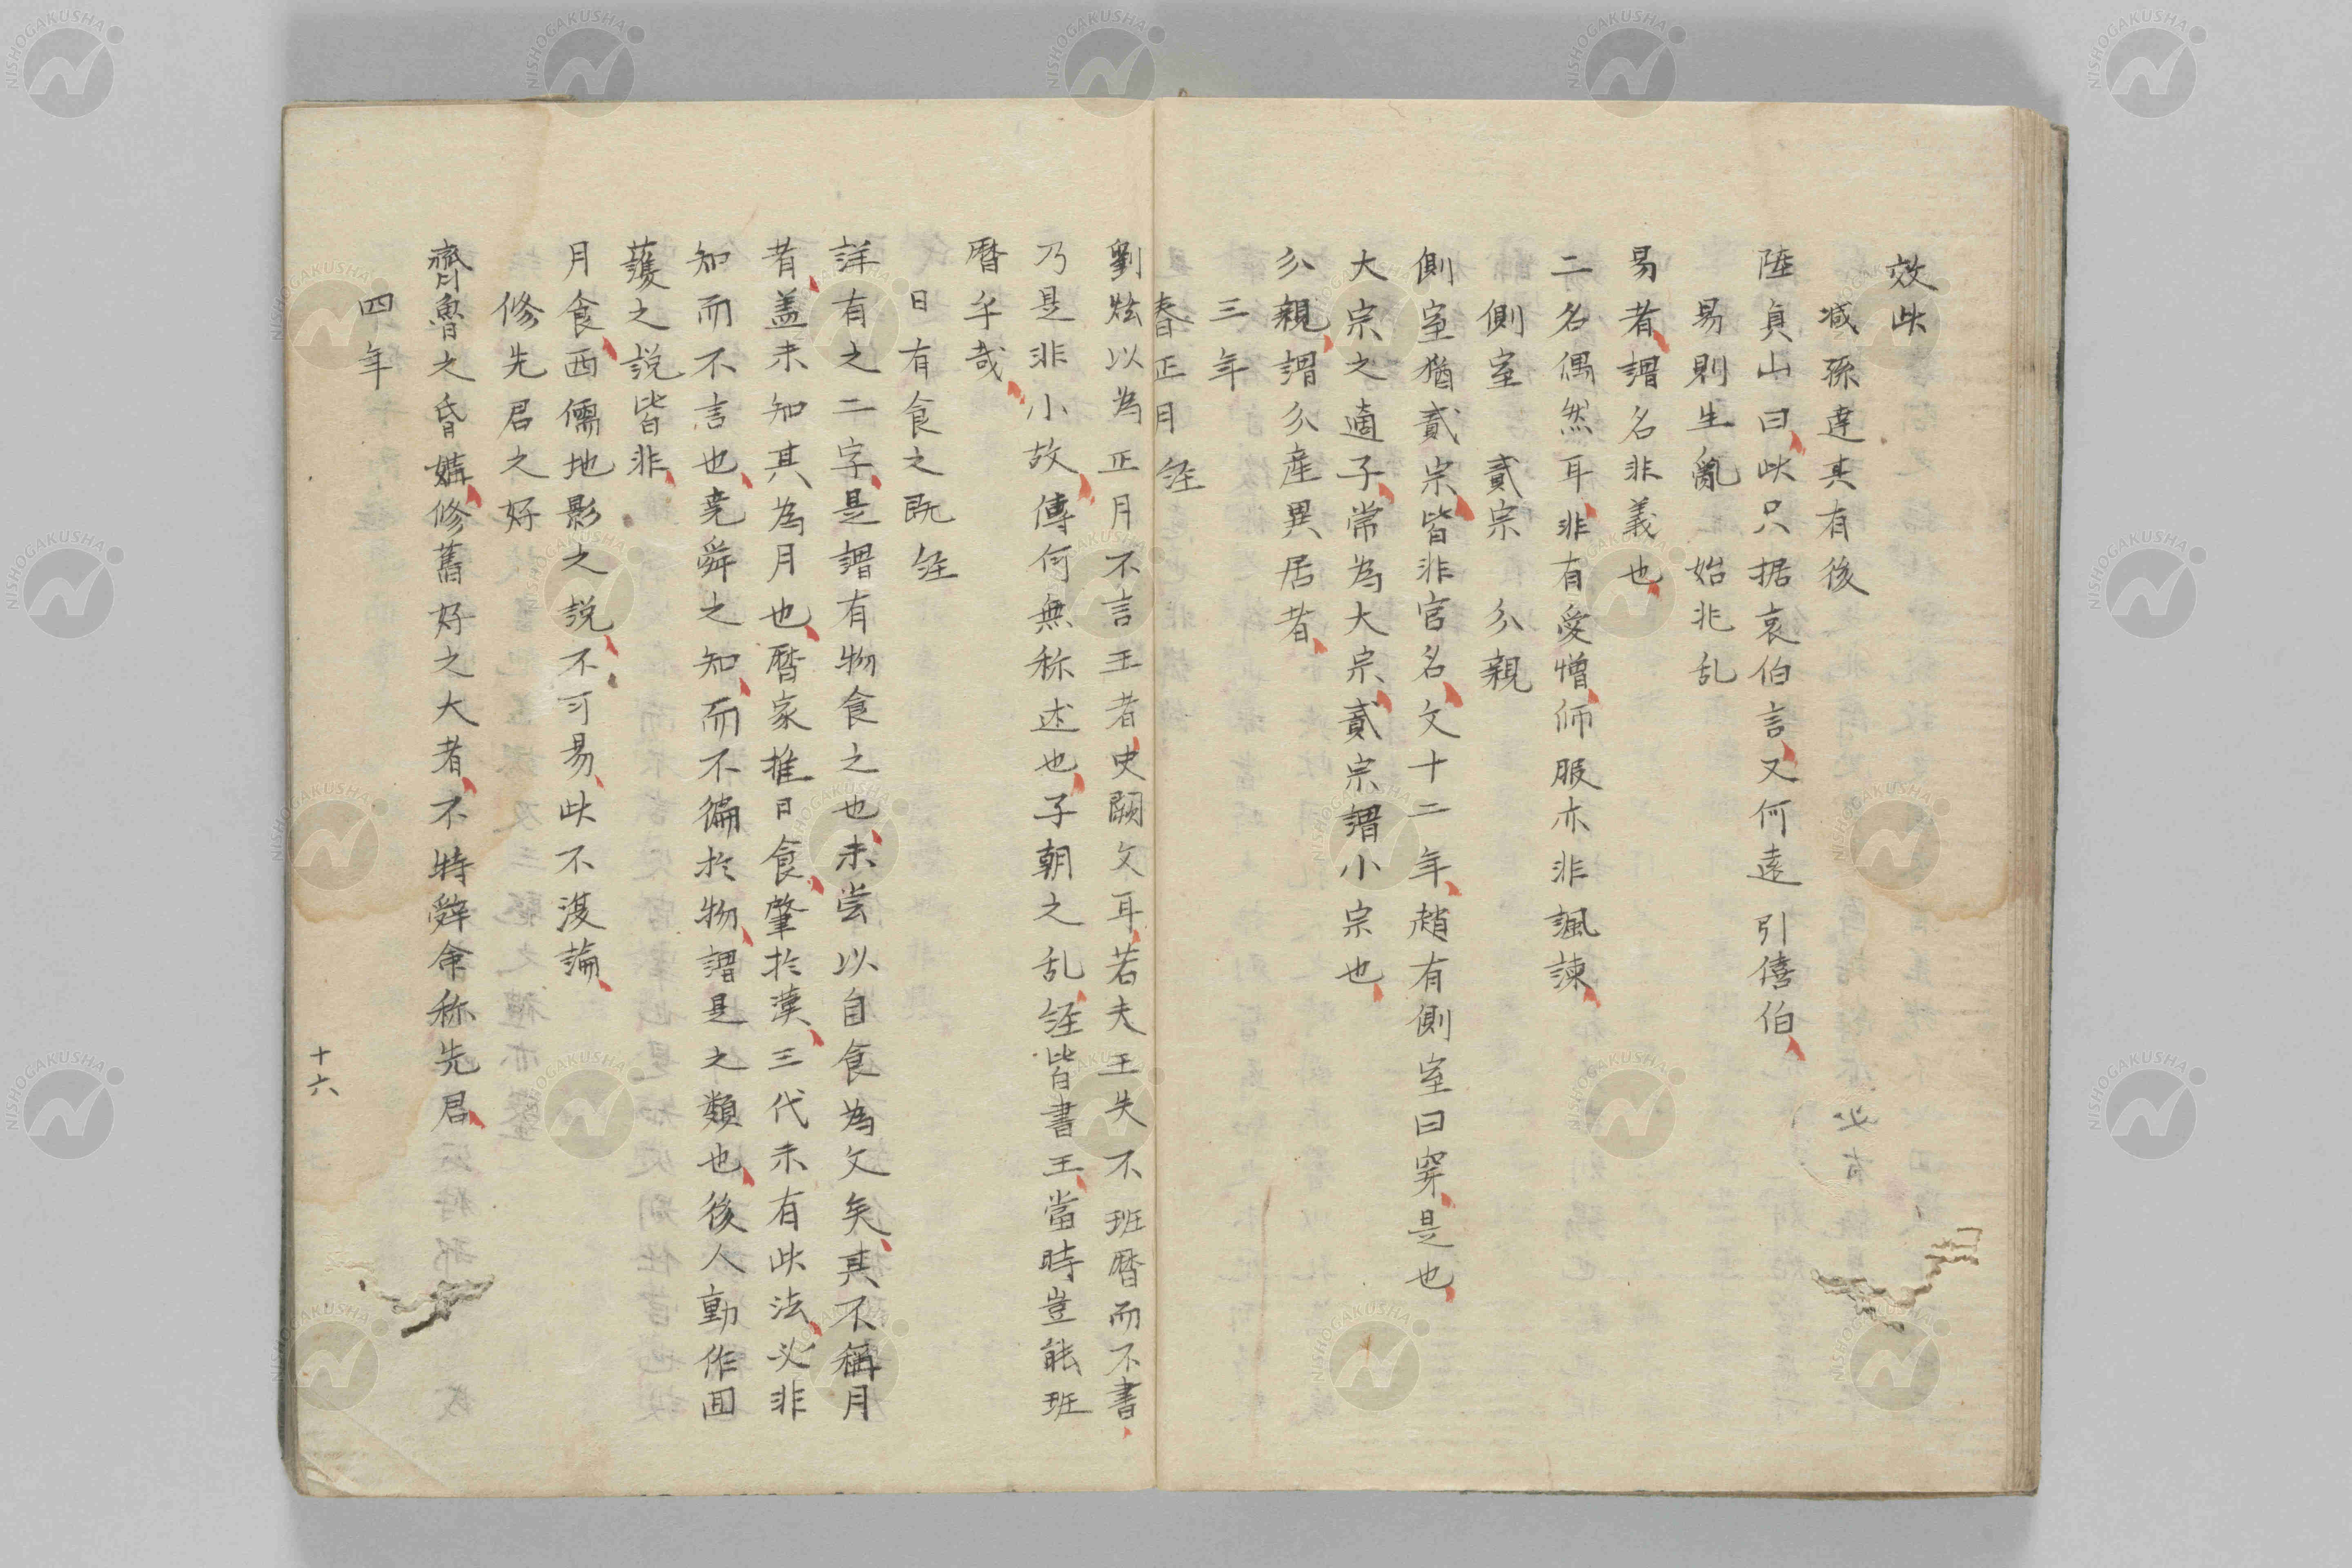 效此
臧孫達其有後
陸貞山曰此只据哀伯言又何遠引僖伯
易則生亂 始兆乱
易者謂名非義也
二名偶然耳非有愛憎師服亦非諷諫
側室 貳宗 分親
側室猶貳宗皆非官名文十二年趙有側室曰穿是也
大宗之適子常為大宗貳宗謂小宗也
分親謂分産異居者
三年
春正月 経
劉炫以為正月不言王者史闕文耳若夫王失不班暦而不書
乃是非小故傳何無称述也子朝之乱経皆書王當時豈能班
暦乎哉
日有食之既 経
詳有之二字是謂有物食之也未嘗以自食為文矣其不稱月
者盖未知其為月也暦家推日食肇於漢三代未有此法必非
知而不言也堯舜之知而不徧於物謂是之類也後人動作回
護之説皆非
月食西儒地影之説不可易此不復論
修先君之好
齊魯之昏媾修舊好之大者不特辭命称先君
四年
十六
NISHOGAKUSHA